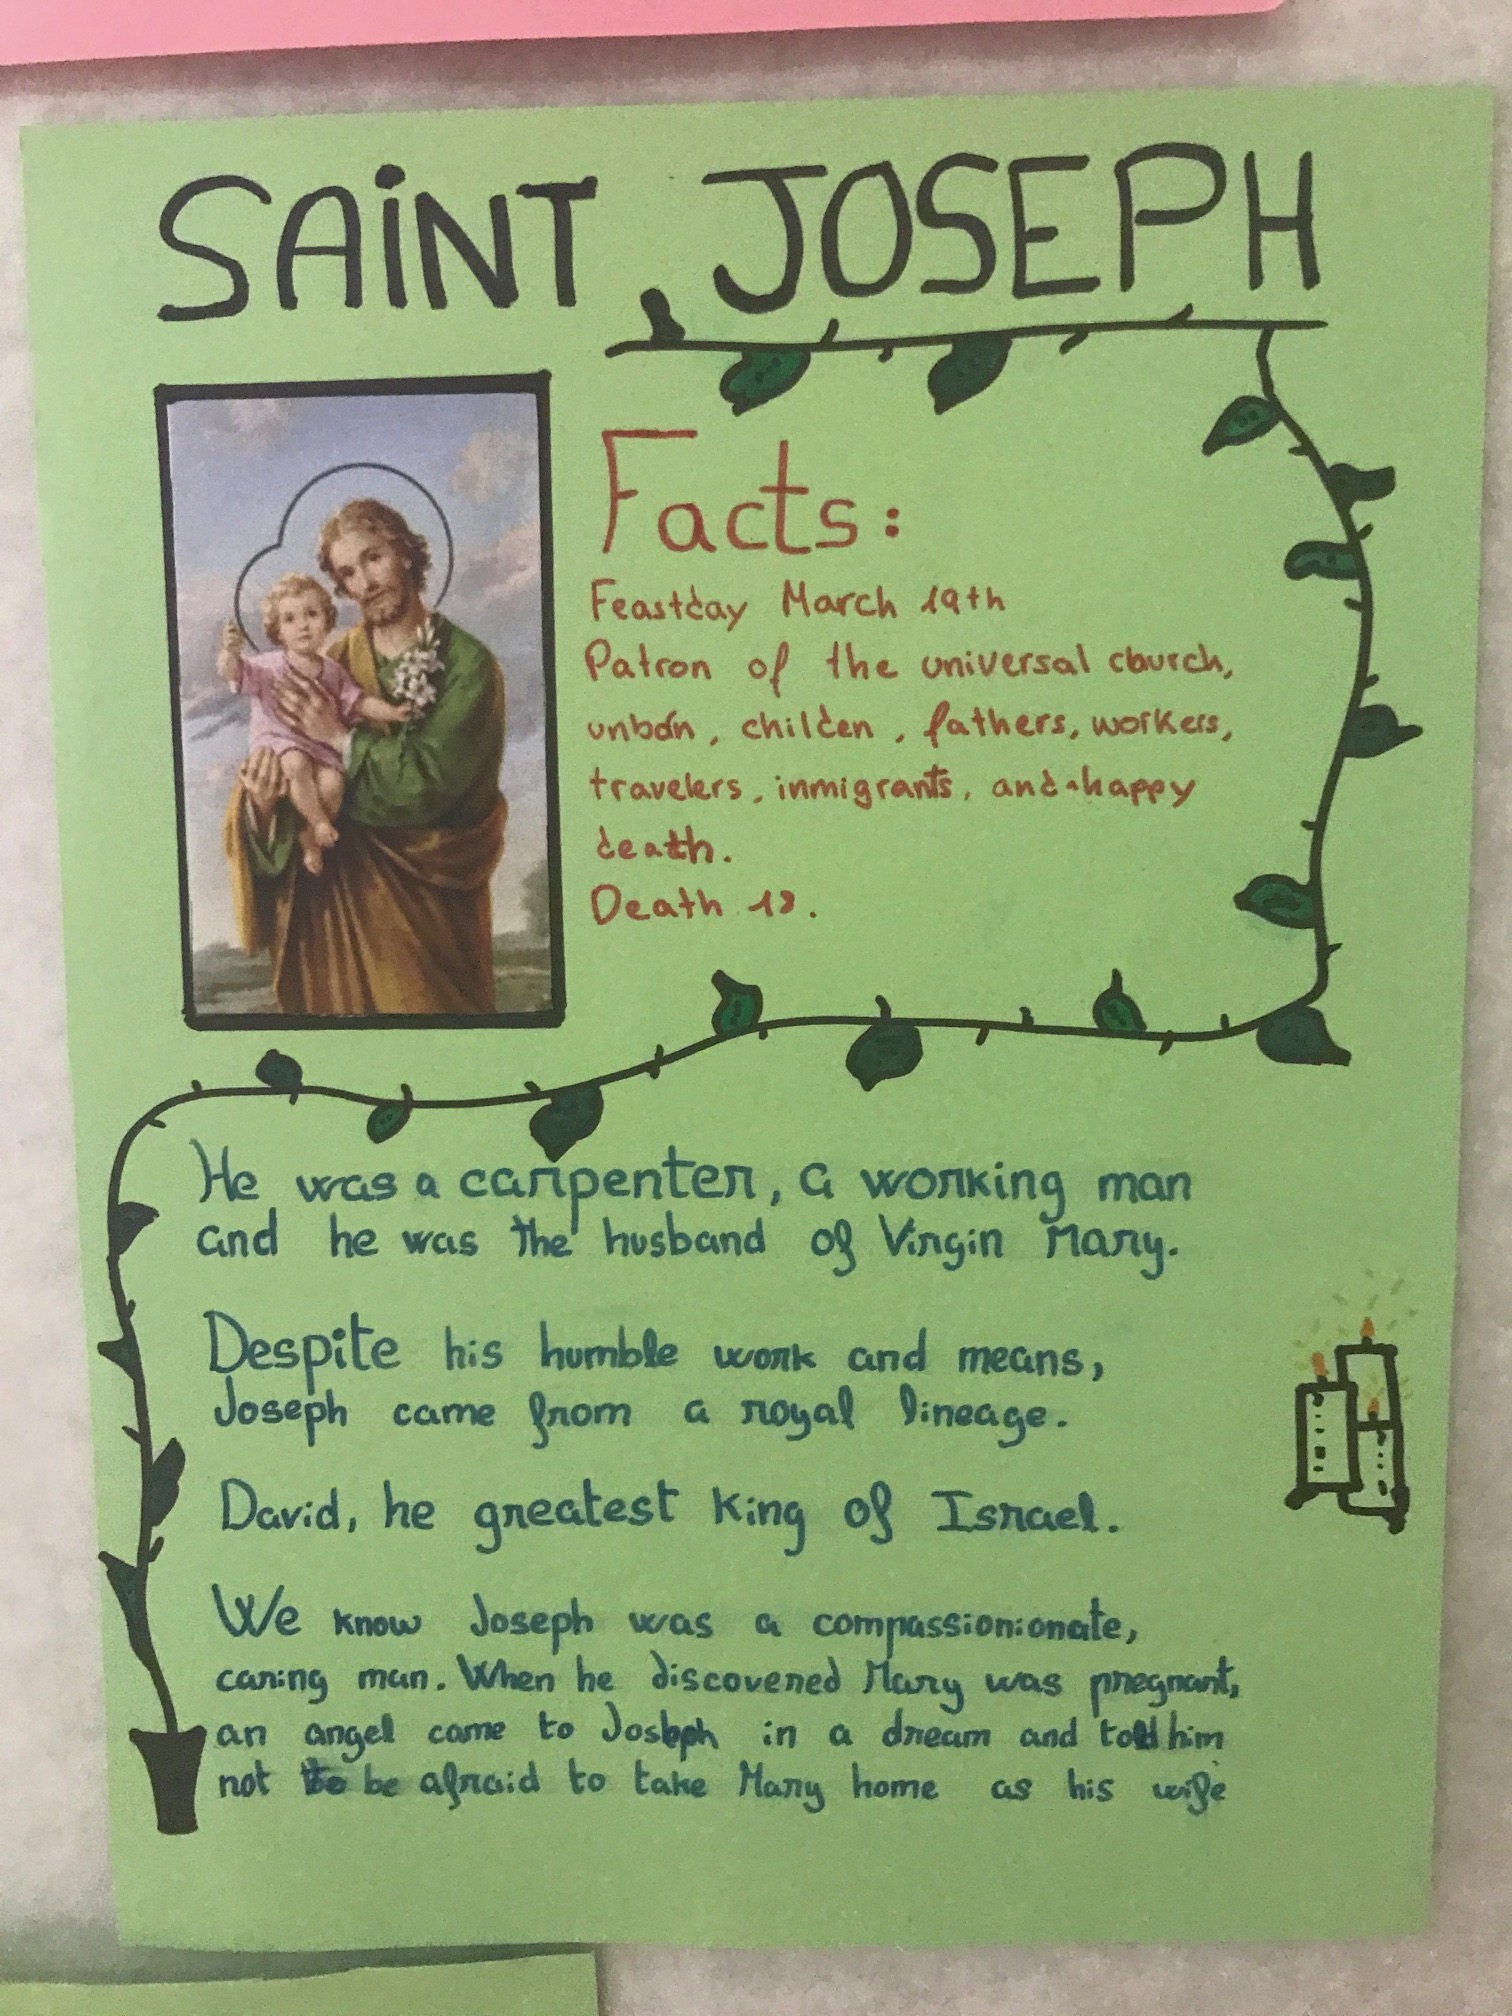 SAINT JOSEPH
Facts:
Feastday March 19th
Patron of the universal church,
unbon, childen, fathers, workers,
travelers, inmigrants, and happy
death.
Death 18.
He was a carpenter, a working man
and he was the husband of Virgin Mary.
Despite his humble work and means,
Joseph came from a royal lineage.
David, he greatest King of Israel.
We know Joseph was a compassionionate,
caring man. When he discovered Mary was pregnant,
an angel came to Joseph in a dream and told him
not to be afraid to take Mary home as his wife